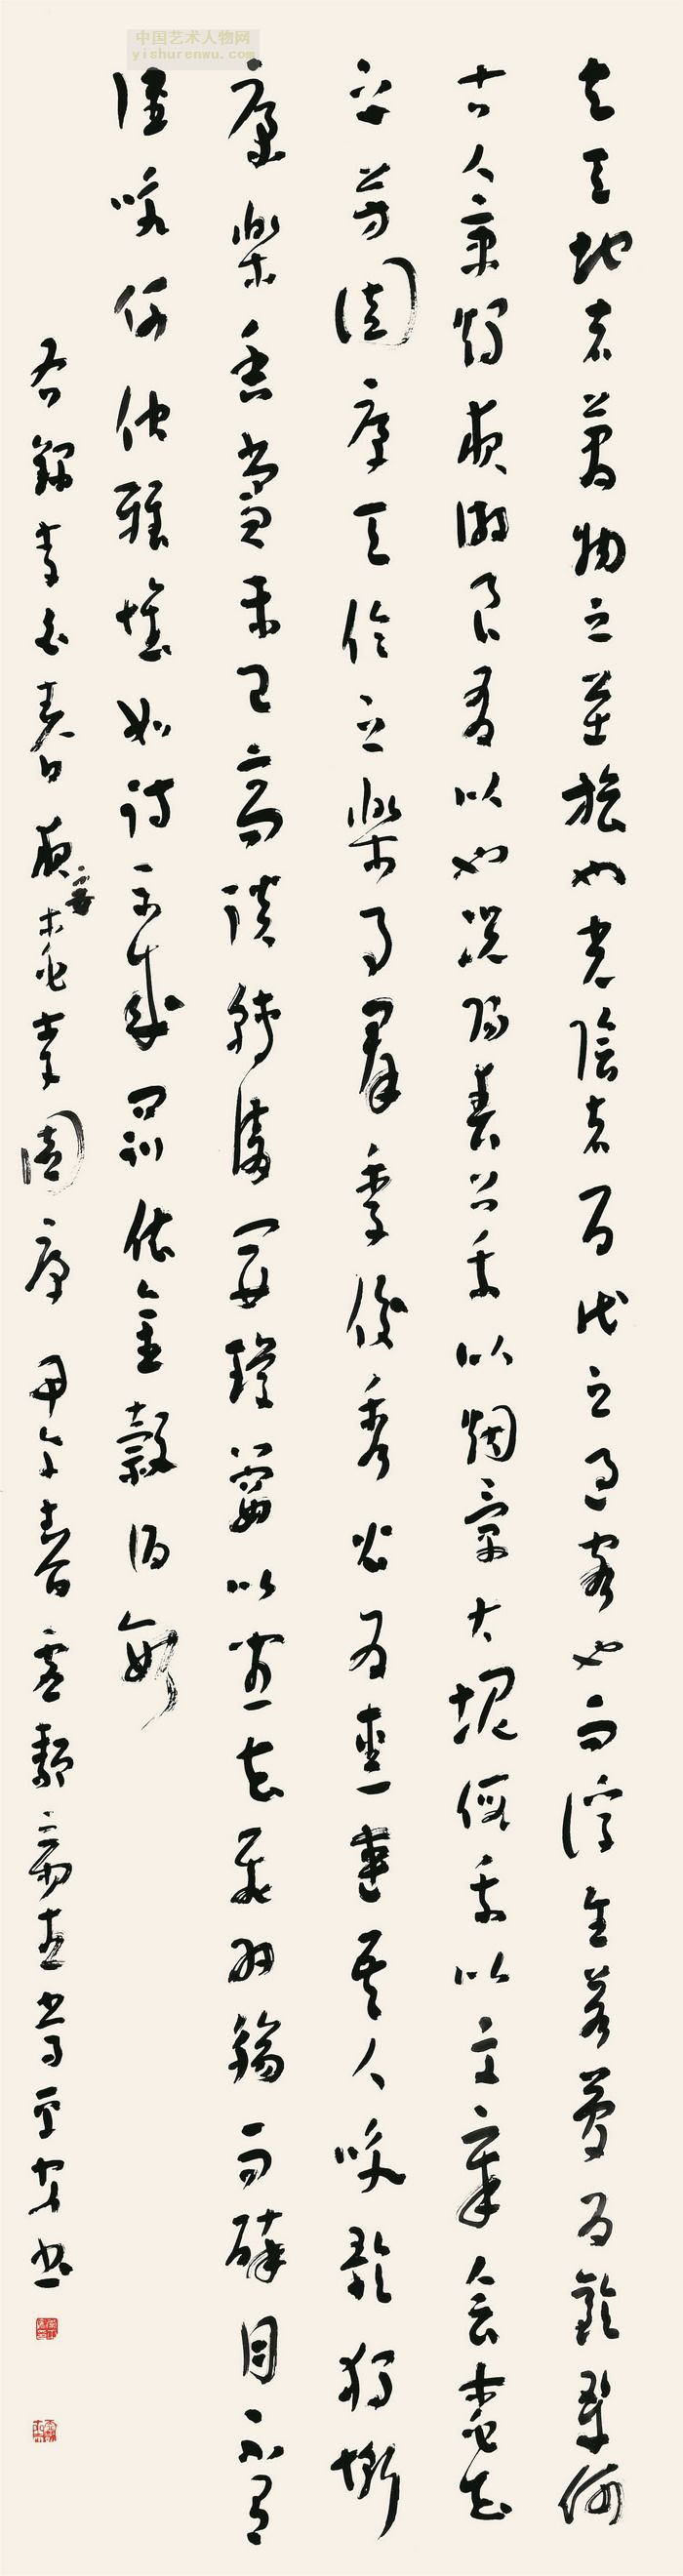 中国艺术人物网
yishurenwu.com
夫天地者萬物之逆旅也光陰者百代之過客也而浮生若夢為歡幾何
古人秉燭夜遊良有以也況陽春召我以煙景大塊假我以文章會桃花
之芳園序天倫之樂事群季俊秀皆為惠連吾人詠歌獨慚
康樂幽賞未已高談轉清開瓊筵以坐花飛羽觴而醉月不有
佳詠何伸雅懷如詩不成罰依金穀酒數
右錄李白春夜宴桃李園序 甲午春日齋主書